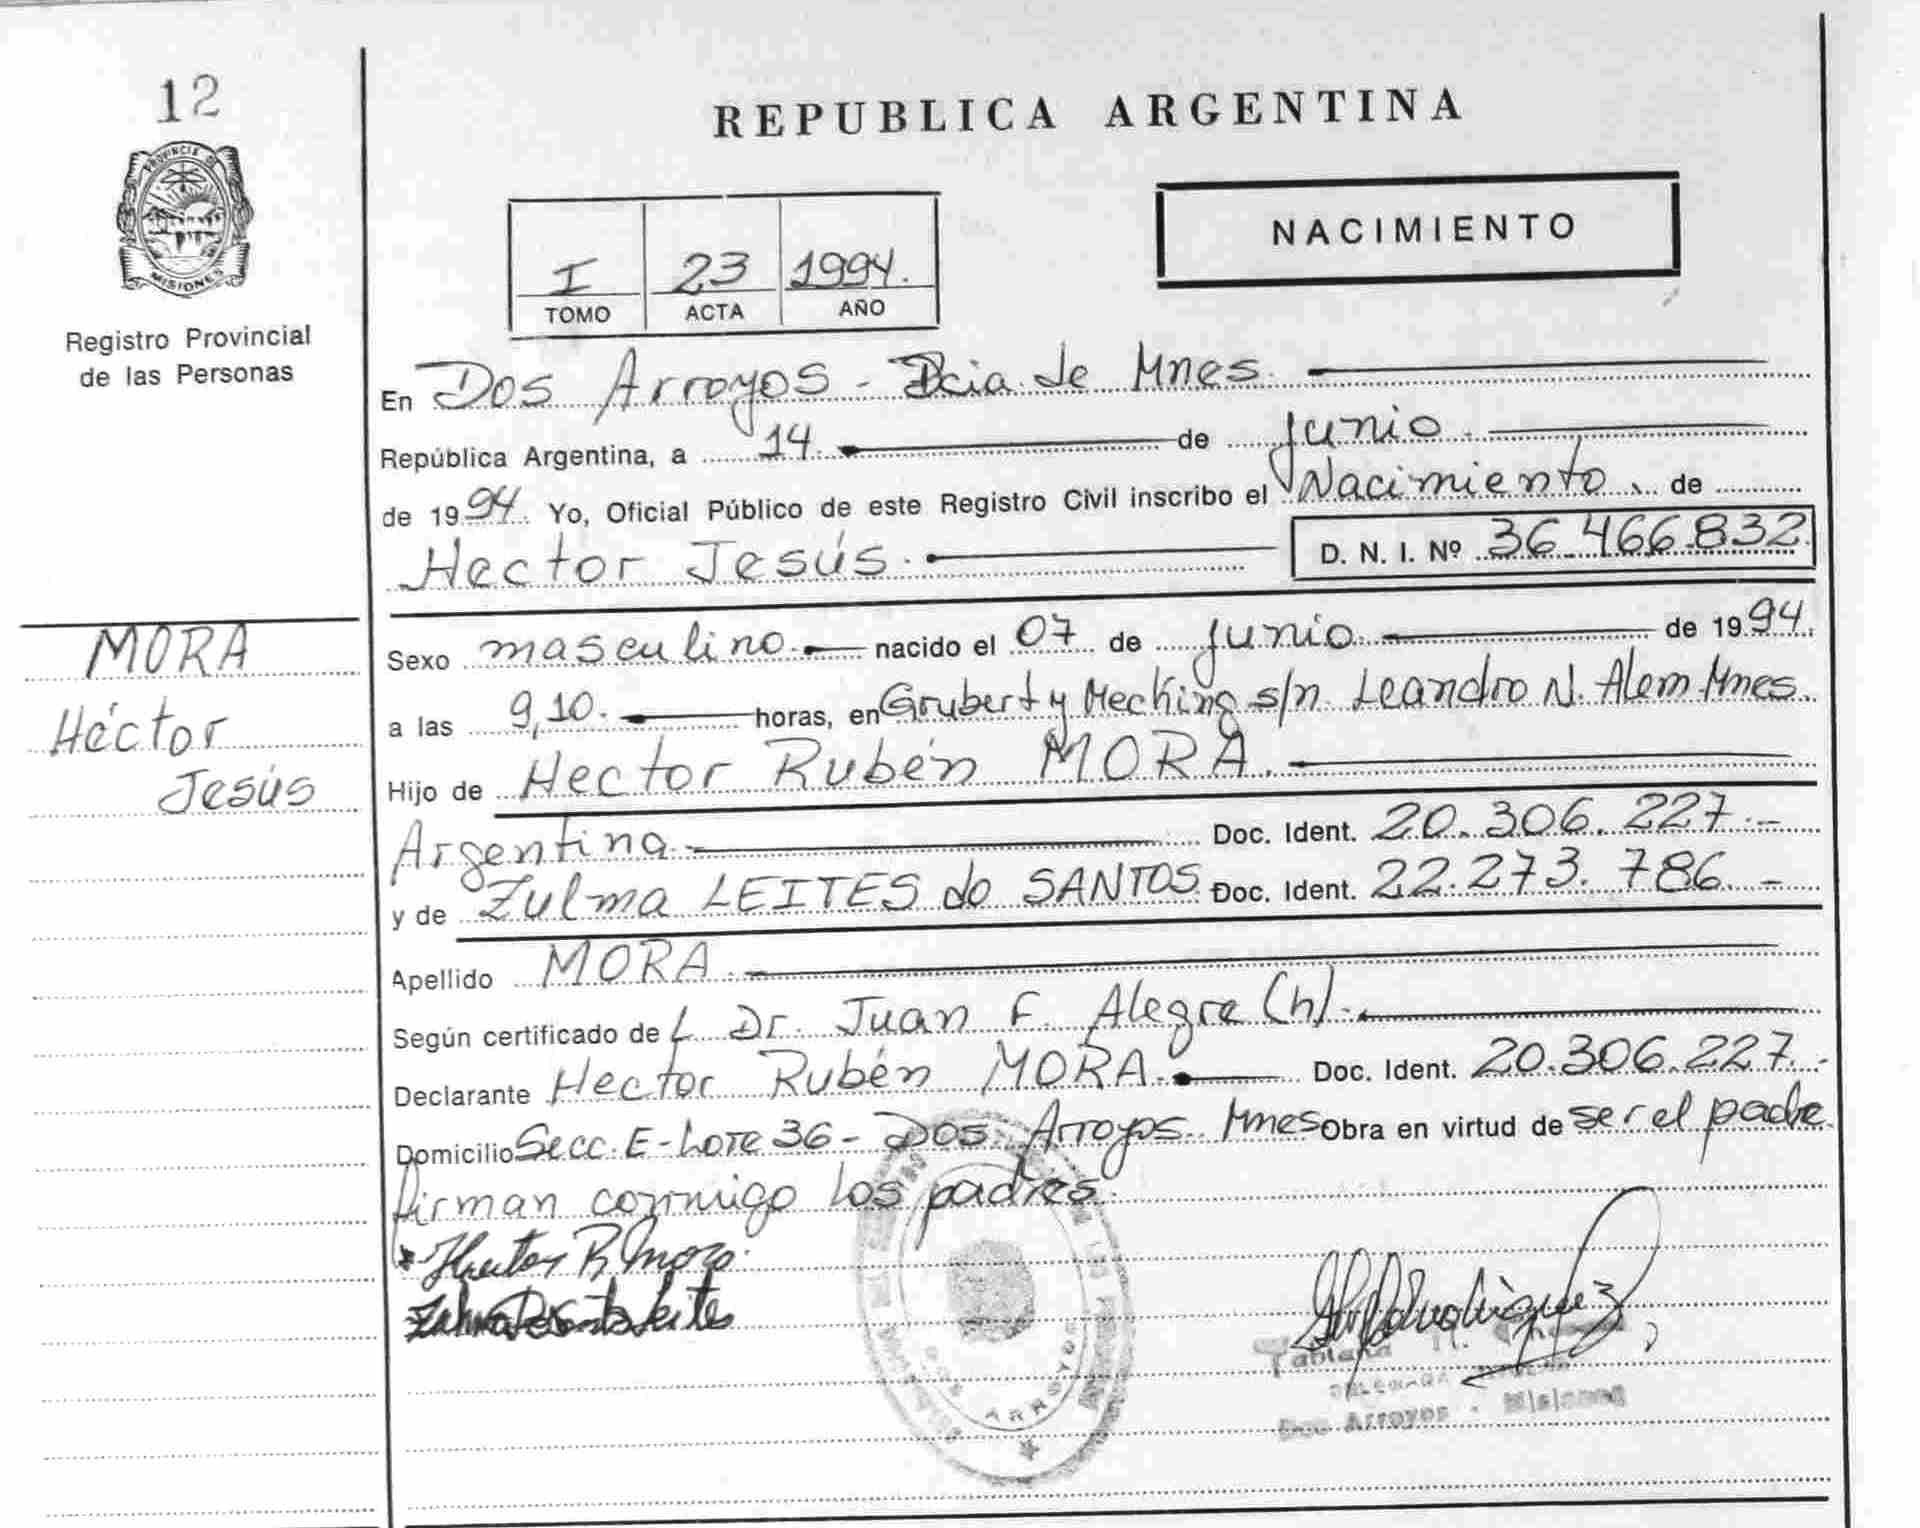 12
PROVINCIA DE
MISIONES
Registro Provincial
de las Personas
REPUBLICA ARGENTINA
NACIMIENTO
I 23 1994.
TOMO ACTA AÑO
En Dos Arroyos - Pcia de Mnes.
República Argentina, a 14. de junio.
de 1994. Yo, Oficial Público de este Registro Civil inscribo el Nacimiento. de
Hector Jesús. D. N. I. Nº 36.466.832.
MORA
Héctor
Jesús
Sexo masculino. nacido el 07 de junio de 1994.
a las 9,10. horas, en Grubert y Mecking s/n. Leandro N. Alem Mnes.
Hijo de Hector Rubén MORA.
Argentina. Doc. Ident. 20.306.227.-
y de Zulma LEITES do SANTOS. Doc. Ident. 22.273.786.-
Apellido MORA.
Según certificado de L Dr. Juan F. Alegre (h).
Declarante Hector Rubén MORA. Doc. Ident. 20.306.227.-
Domicilio Secc. E-Lote 36- Dos Arroyos. Mnes Obra en virtud de ser el padre
firman conmigo los padres.
Hector R Mora.
DOS ARROYOS
Dos Arroyos - Misiones